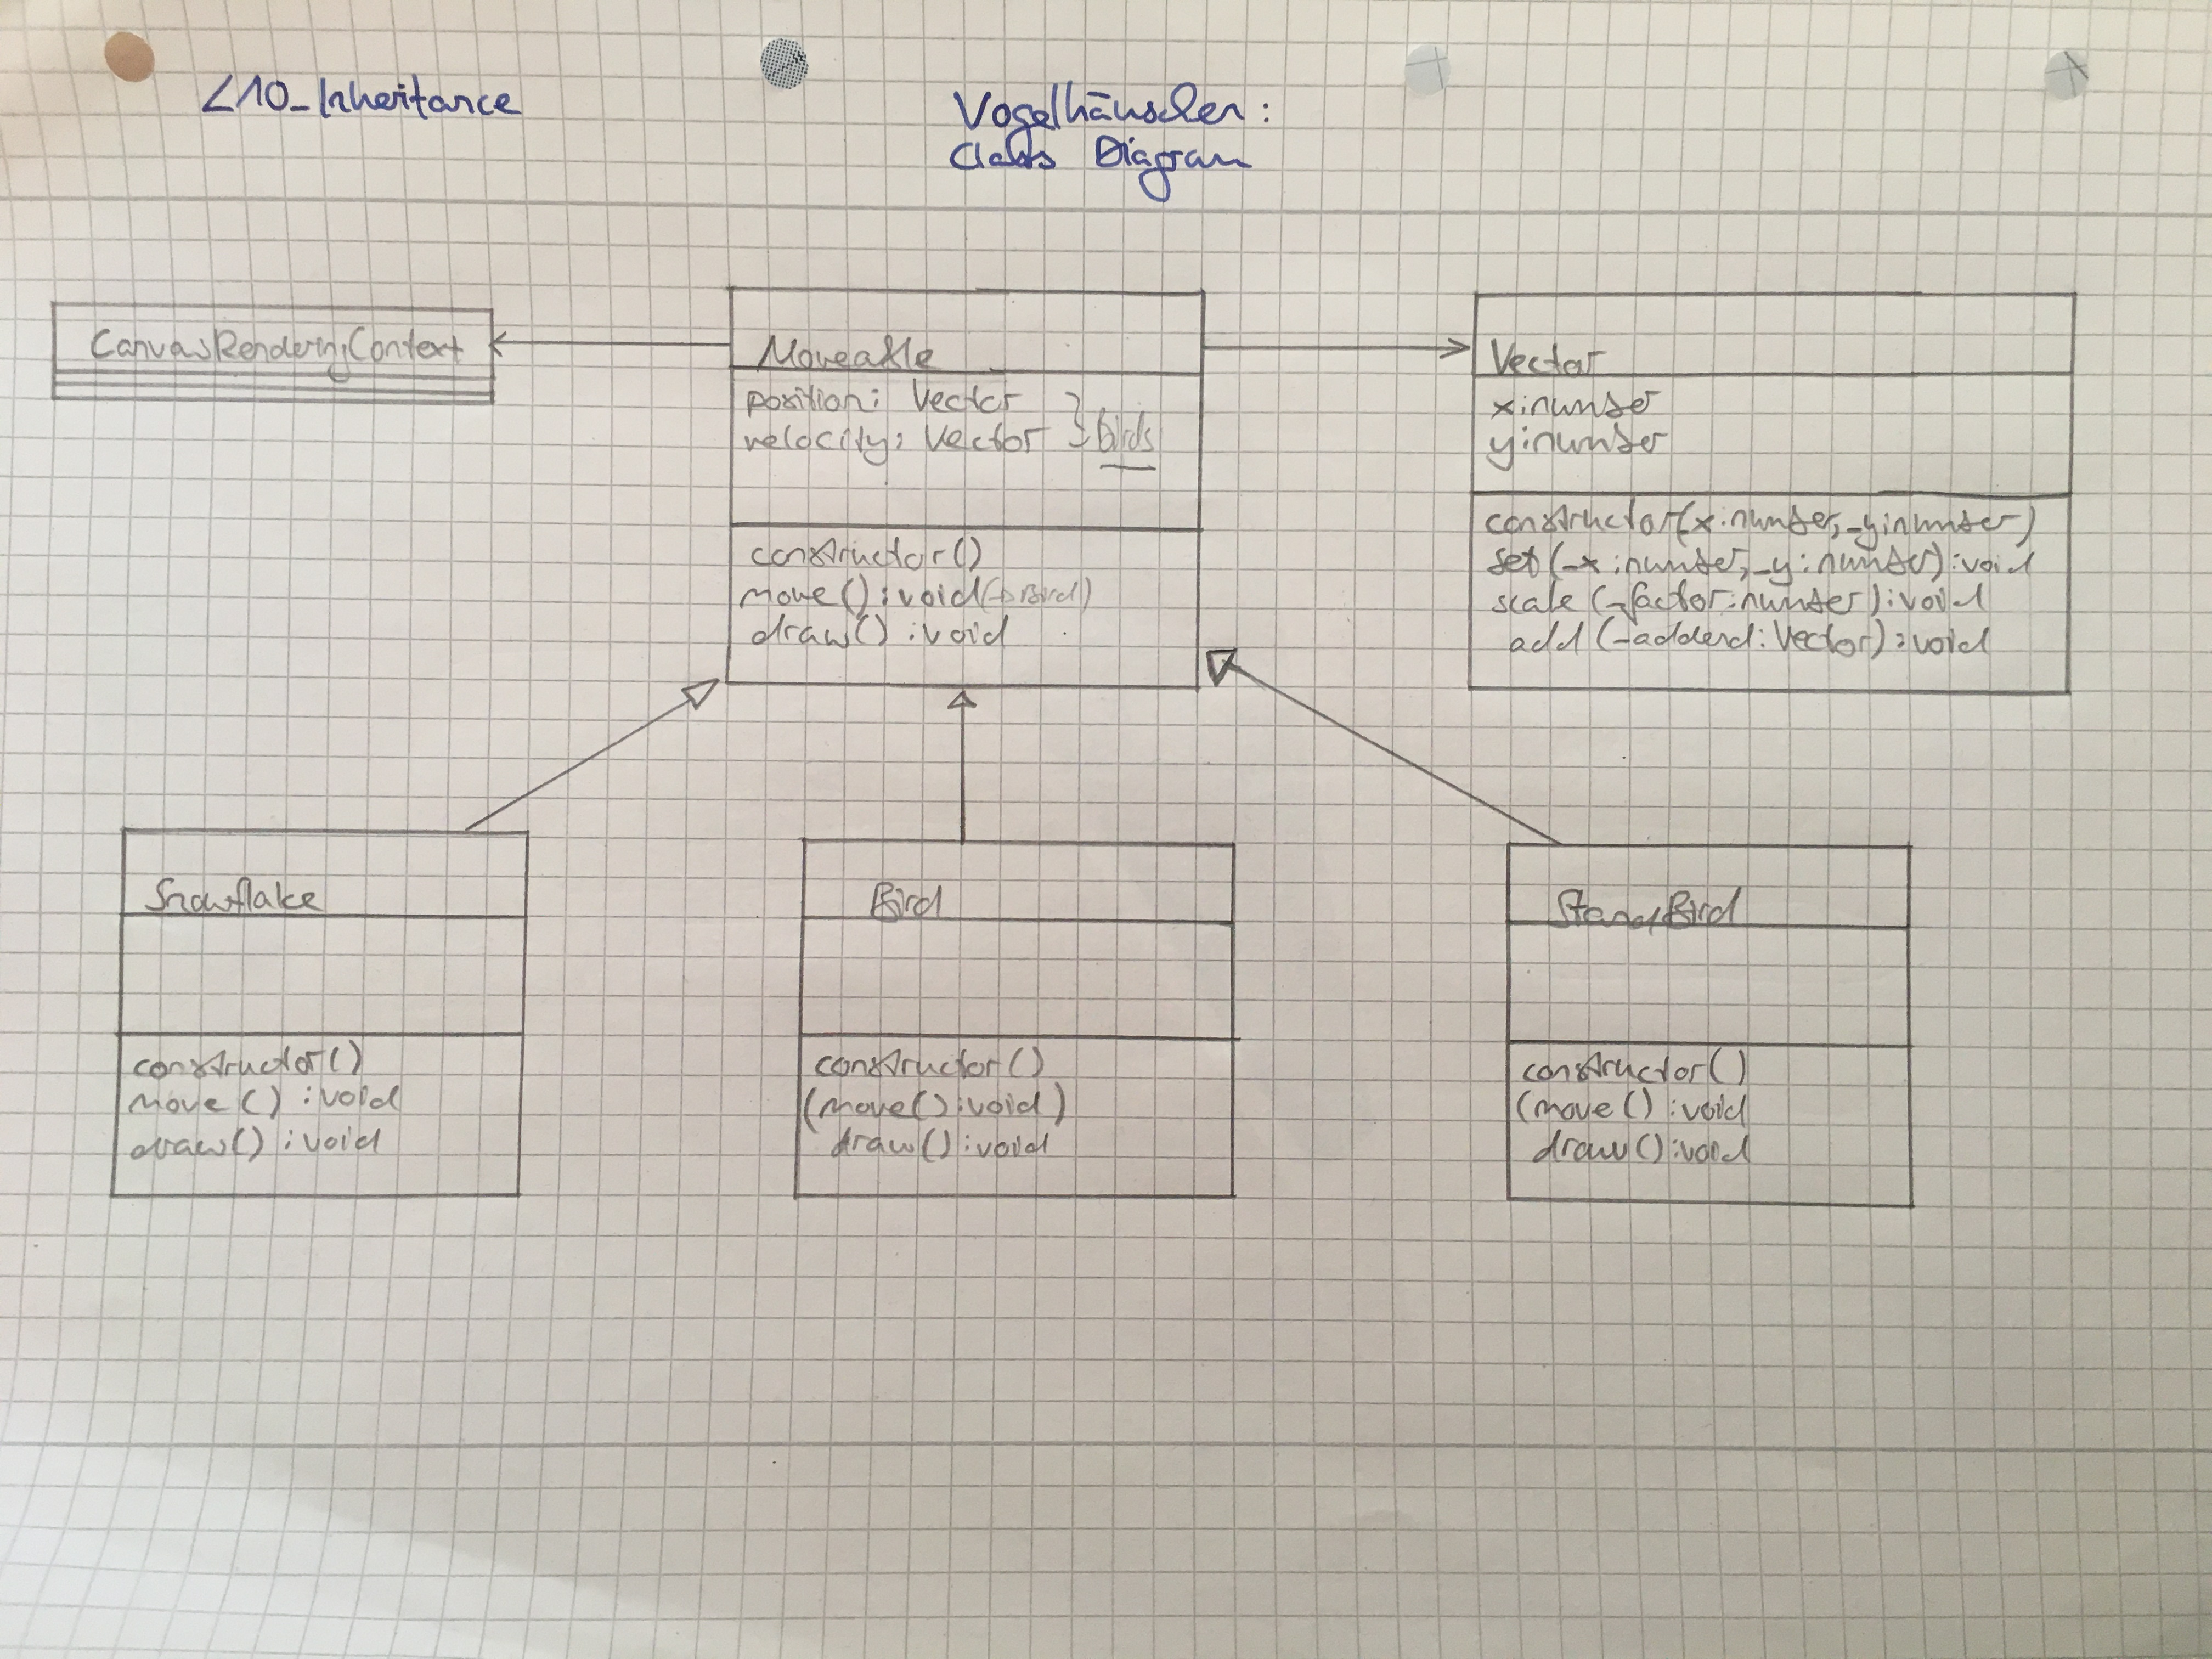 L10_Inheritance
Vogelhäuschen:
Class Diagram
CanvasRenderingContext
Moveable
position: Vector
velocity: Vector } Birds
constructor()
move(): void (→Bird)
draw(): void
Vector
x:number
y:number
constructor(x:number,_y:number)
set(_x:number,_y:number):void
scale(_factor:number):void
add(_addend:Vector):void
Snowflake
constructor()
move():void
draw():void
Bird
constructor()
(move():void)
draw():void
StandBird
constructor()
(move():void
draw():void